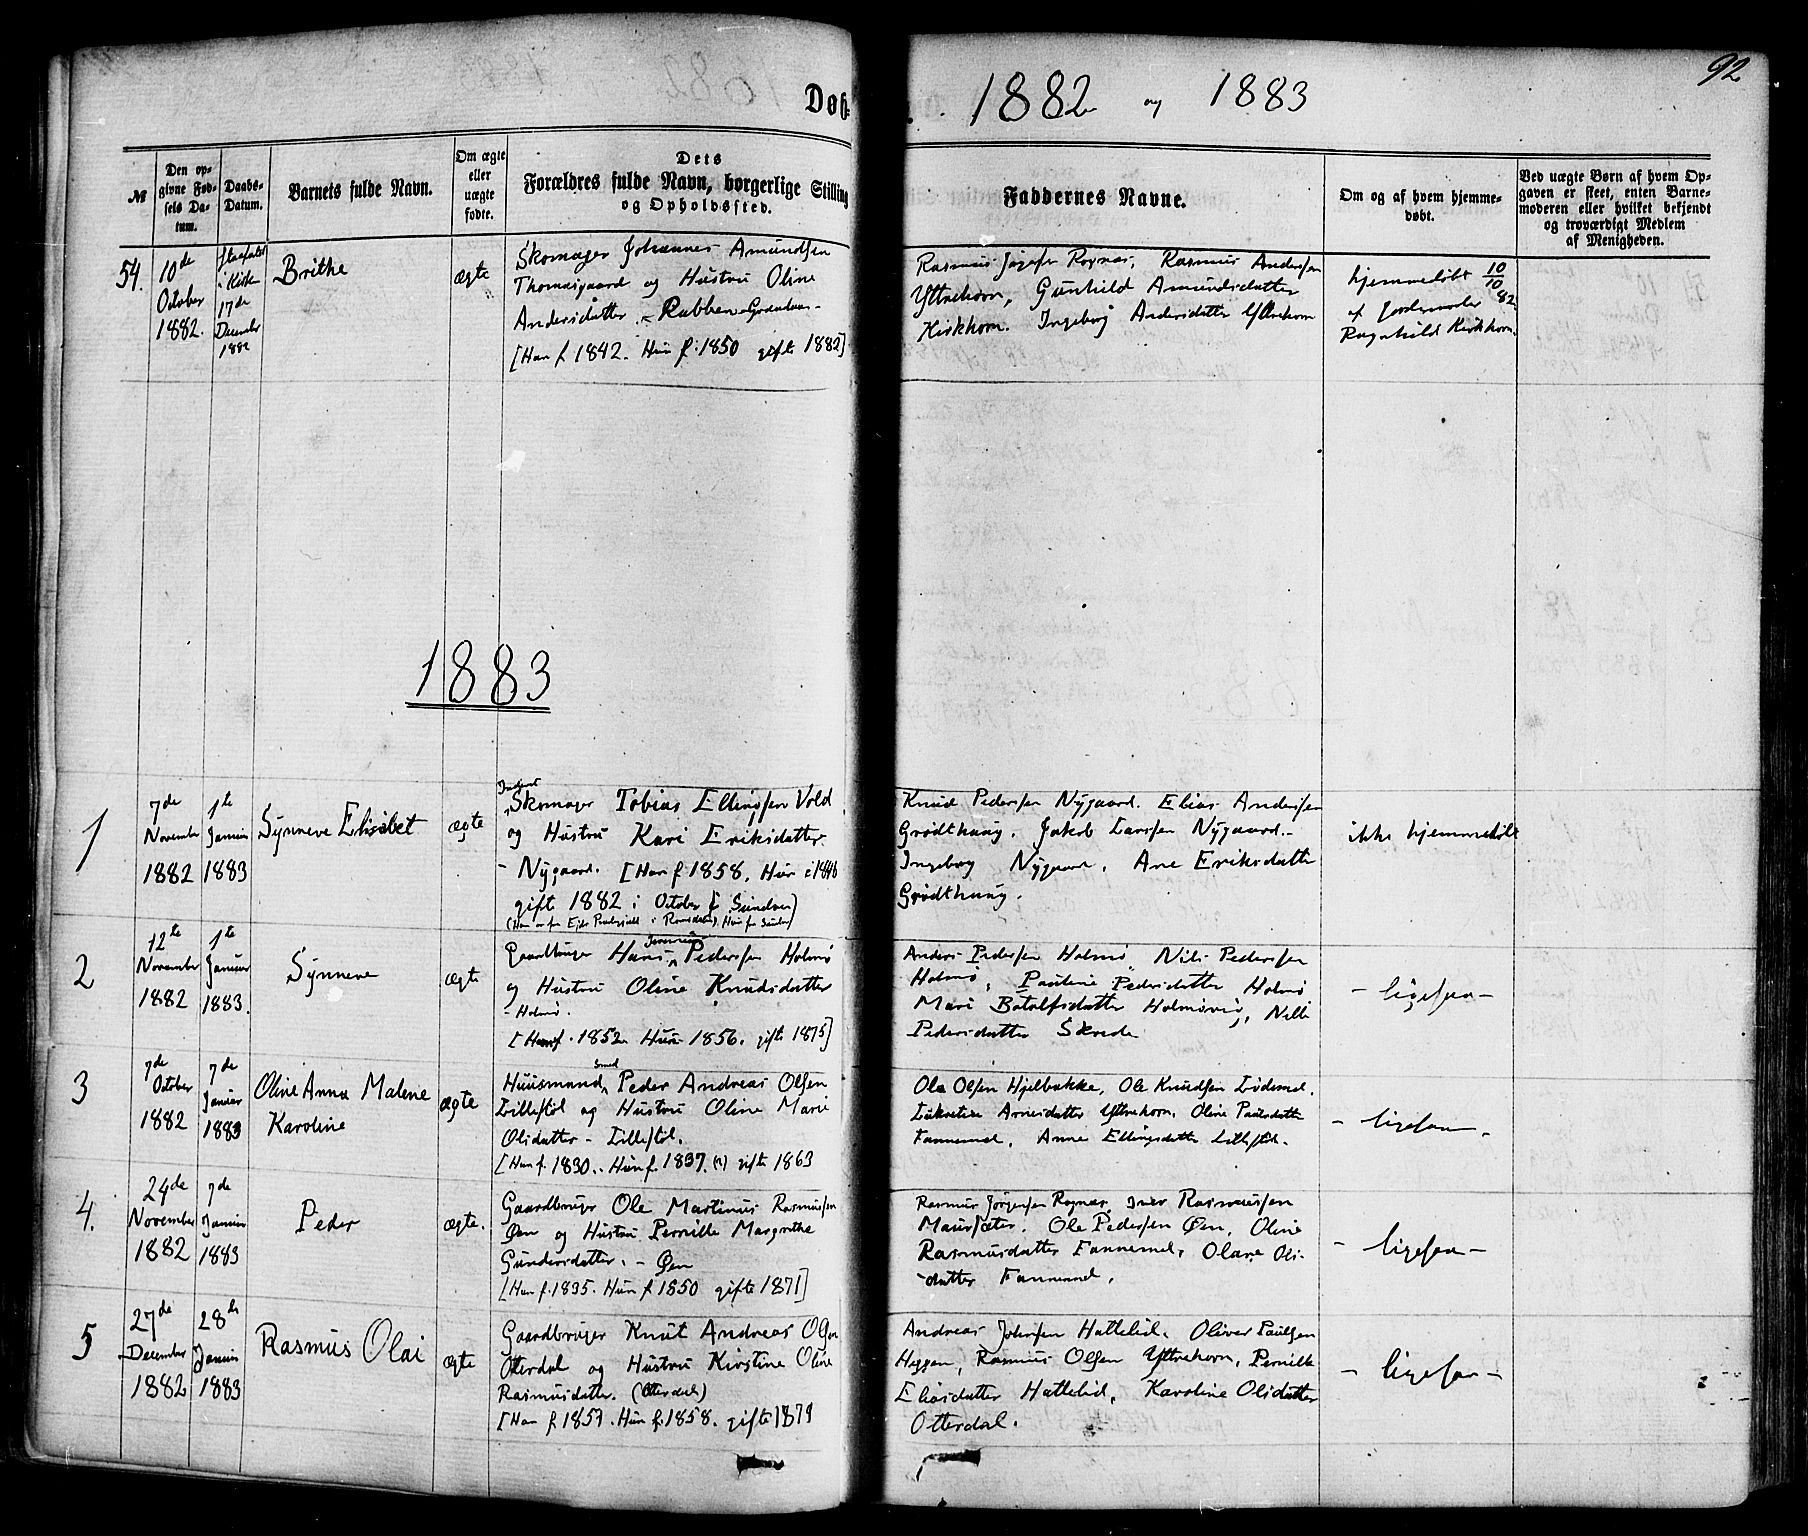 92
Døb-
1882 og 1883
№
Den op-
givne Fød-
sels Da-
tum.
Daabs-
Datum.
Barnets fulde Navn.
Om ægte
eller
uægte
fødte.
Dets
Forældres fulde Navn, borgerlige Stilling
og Opholdssted.
Faddernes Navne.
Om og af hvem hjemme-
døbt.
Ved uægte Børn af hvem Op-
gaven er skeet, enten Barne-
moderen eller hvilket bekjendt
og troværdigt Medlem
af Menigheden.
54.
10de
October
1882.
Kirke
17de
December
1882
Brithe
ægte
Skomager Johannes Amundsen
Thomasgaard og Hustru Oline
Andersdatter - Rubben
[Han f 1842. Hun f. 1850 gifte 1882]
Rasmus Rognæs, Rasmus Andersen
Yttrehorn, Gunhild Amundsdatter
Kirkhorn. Ingeborg Andersdatter Yttrehorn
hjemmedøbt 10/10 82
af Jordemoder
Ragnhild Kirkhorn.
1883
1
7de
November
1882
1te
Januar
1883
Synneve Elisabet
ægte
Skomager Tobias Ellingsen Vold
og Hustru Kari Eriksdatter
- Nygaard. [Han f 1858. Hun 1846
gifte 1882 i October i Sunelven]
Knud Pedersen Nygaard. Elias Andersen
Grødthaug. Jakob Larssen Nygaard.-
Ingeborg Nygaard, Ane Eriksdatter
Grødthaug.
ikke hjemmedøbt
2
12te
November
1882
1te
Januar
1883.
Synneve
ægte
Gaardbruger Hans Pederssen Holmø
og Hustru Oline Knudsdatter
- Holmø.
[Han f. 1852 Hun 1856. gifte 1875]
Anders Pedersen Holmø Nils Pederssen
Holmø, Pauline Pedersdatter Holmø
Mari Botolfsdatter Holmøvig, Nille
Pedersdatter Skrede
- ligesaa -
3
7de
October
1882
7de
Januar
1883
Oline Anna Malene
Karoline
ægte
Huusmand Smed Peder Andreas Olsen
Lillestøl og Hustru Oline Marie
Olsdatter - Lillestøl.
[Han f. 1830.. Hun f. 1837. (?) gifte 1863
Ole Olsen Hjelbakke, Ole Knudsen Lødemel.
Lukretia Arnesdatter Yttrehorn, Oline Paulsdatter
Fannemel, Anne Ellingsdatter Lillestøl.
- ligesaa -
4.
24de
November
1882
7de
Januar
1883
Peder
ægte.
Gaardbruger Ole Martinus Rasmussen
Øen og Hustru Pernille Margrethe
Gundersdatter. - Øen
[Han f. 1835. Hun f 1850 gifte 1871]
Rasmus Jørgensen Rognæs, Iver Rasmussen
Maursæter, Ole Pedersen Øen, Oline
Rasmusdatter Fannemel, Olave Ols-
datter Fannemel.
- ligesaa -
5
27de
December
1882
28de
Januar
1883
Rasmus Olai
ægte
Gaardbruger Knut Andreas Olsen
Otterdal og Hustru Kirstine Oline
Rasmusdatter. (Otterdal)
[Han f 1857. Hun f. 1858. gifte 1879
Andreas Johnsen Hattelid, Oliver Paulsen
Heggen, Rasmus Olsen Yttrehorn, Pernille
Eliasdatter Hattelid, Karoline Olsdatter
Otterdal.
- ligesaa -